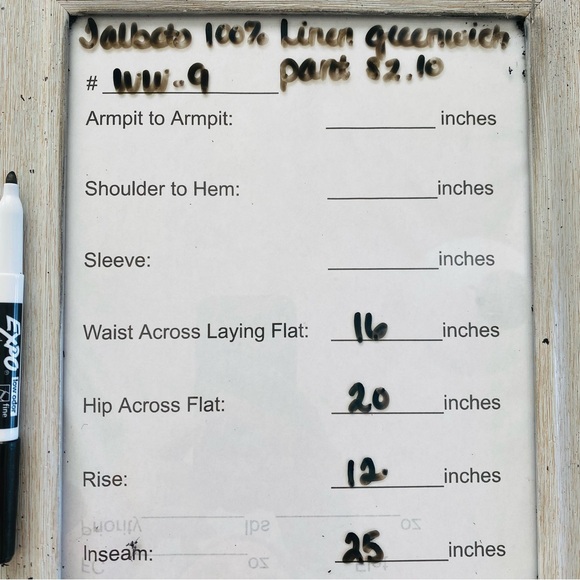 Talbots 100% Linen greenwich
# WW-9 pant SZ.10
Armpit to Armpit: inches
Shoulder to Hem: inches
Sleeve: inches
Waist Across Laying Flat: 16 inches
Hip Across Flat: 20 inches
Rise: 12 inches
Priority lbs oz
Inseam: 25 inches
FC oz Flat
EXPO
low odor
fine